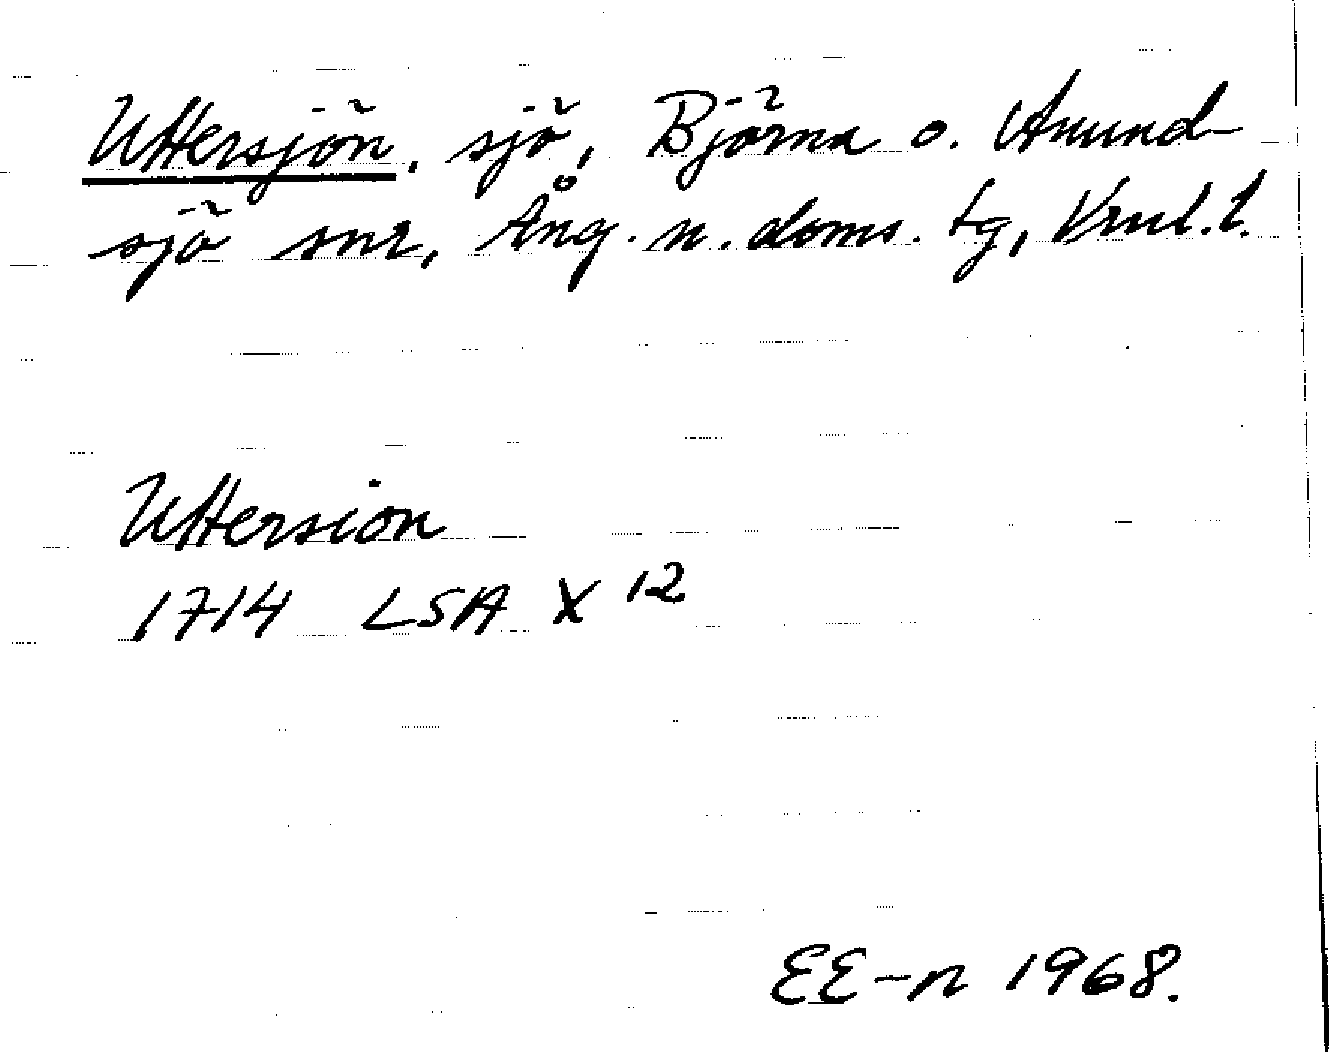 Uttersjön, sjö, Björna o. Anund-
sjö snr, Ång. n. doms. tg, Vrnl. l.
Uttersion
1714 LSA X 12
EE-n 1968.